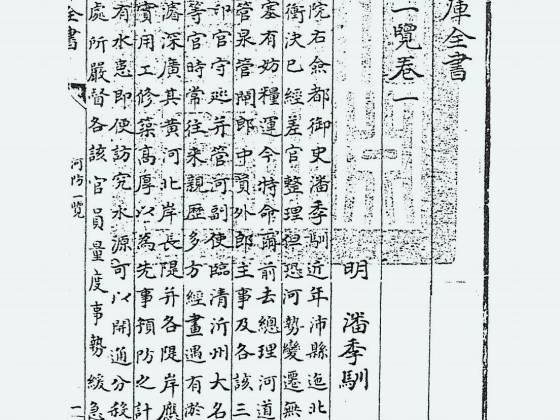 庫全書
一覽卷一
明 潘季馴
院右僉都御史潘季馴近年沛縣迤北
衝決已經差官整理但恐河勢變遷無
塞有妨糧運今特命爾前去總理河道
管泉管閘郎中員外郎主事及各該三
印官守巡并管河副使臨清沂州大名
等官時常往來親歷多方經畫遇有淤
濬深廣其黄河北岸長隄并各隄岸應
實用工修築高厚以為先事預防之計
有水患即便訪究水源可以開通分殺
處所嚴督各該官員量度事勢緩急
全書
河防一覽